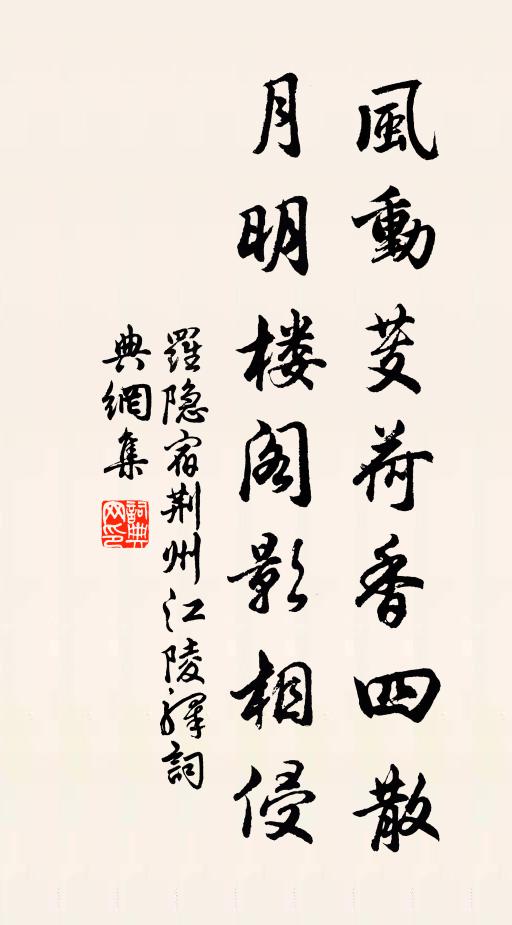 風動芰荷香四散
月明楼阁影相侵
羅隐宿荆州江陵驛詞
典網集
詞典网印